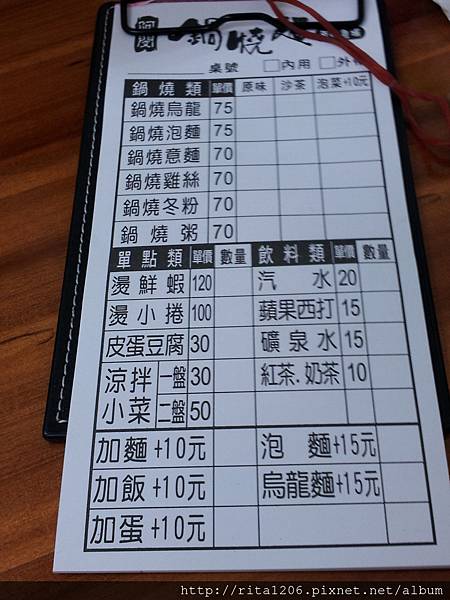 鍋燒
桌號 □內用 □外
鍋燒類 單價 原味 沙茶 泡菜+10元
鍋燒烏龍 75
鍋燒泡麵 75
鍋燒意麵 70
鍋燒雞絲 70
鍋燒冬粉 70
鍋燒粥 70
單點類 單價 數量 飲料類 單價 數量
燙鮮蝦 120 汽水 20
燙小捲 100 蘋果西打 15
皮蛋豆腐 30 礦泉水 15
涼拌 一盤 30 紅茶.奶茶 10
小菜 二盤 50
加麵+10元 泡麵+15元
加飯+10元 烏龍麵+15元
加蛋+10元
http://rita1206.pixnet.net/album